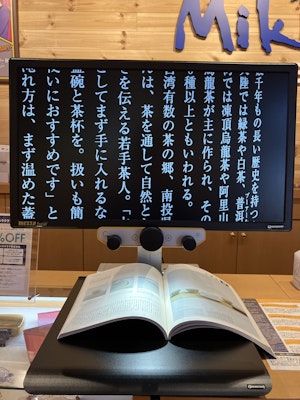 Mik
千年もの長い歴史を持つ
陸では緑茶や白茶、普洱
では凍頂烏龍茶や阿里山
烏龍茶が主に作られ、その
種以上ともいわれる。
湾有数の茶の郷、南投
は、茶を通して自然と
とを伝える若手茶人。「
してまず手に入れるな
蓋碗と茶杯を。扱いも簡
いにおすすめです」と
淹れ方は、まず温めた蓋
%OFF